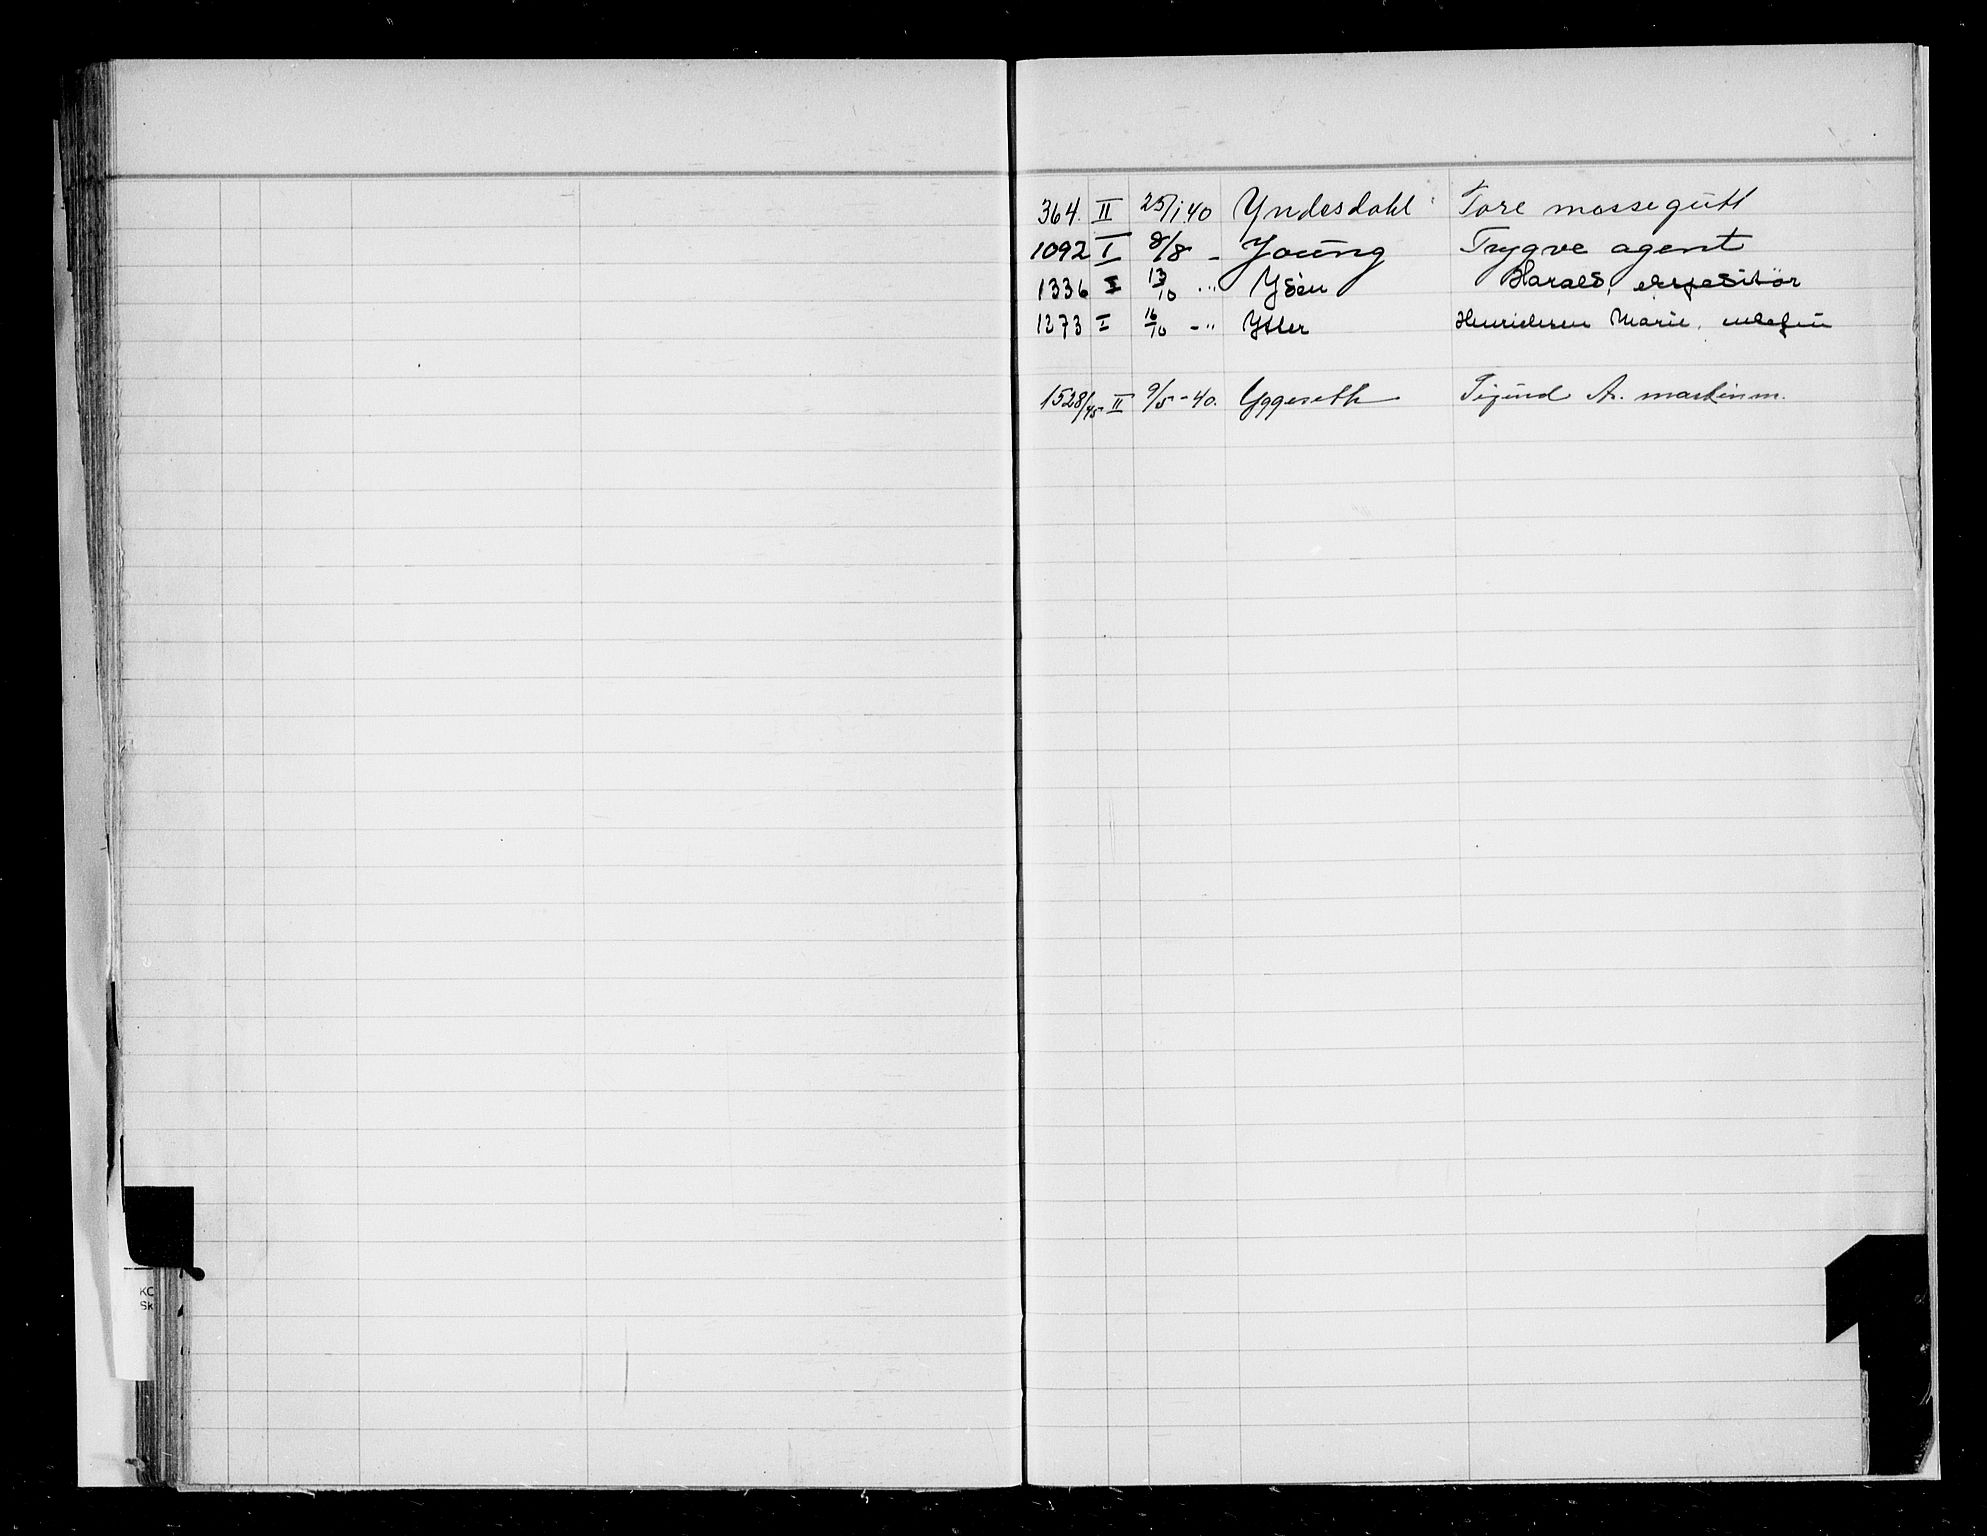 364. II 25/1 40 Yndesdahl Tore messegutt
1092 I 8/8 - Young Trygve agent
1336 I 13/10 -"- Ysen Harald, ekspeditör
1273 I 16/10 -"- Ytter Henriksen Marie,
1528/45 II 9/5-40. Yggeseth A. maskinm.
KC
Sk